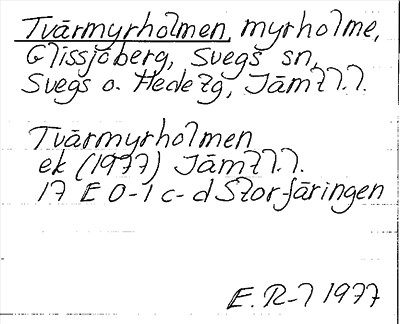 Tvärmyrholmen, myrholme,
Glissjöberg, Svegs sn,
Svegs o. Hede tg, Jämtl. l.
Tvärmyrholmen
ek (1977) Jämtl. l.
17 E 0-1 c-d Storfåringen
E. R-l 1977